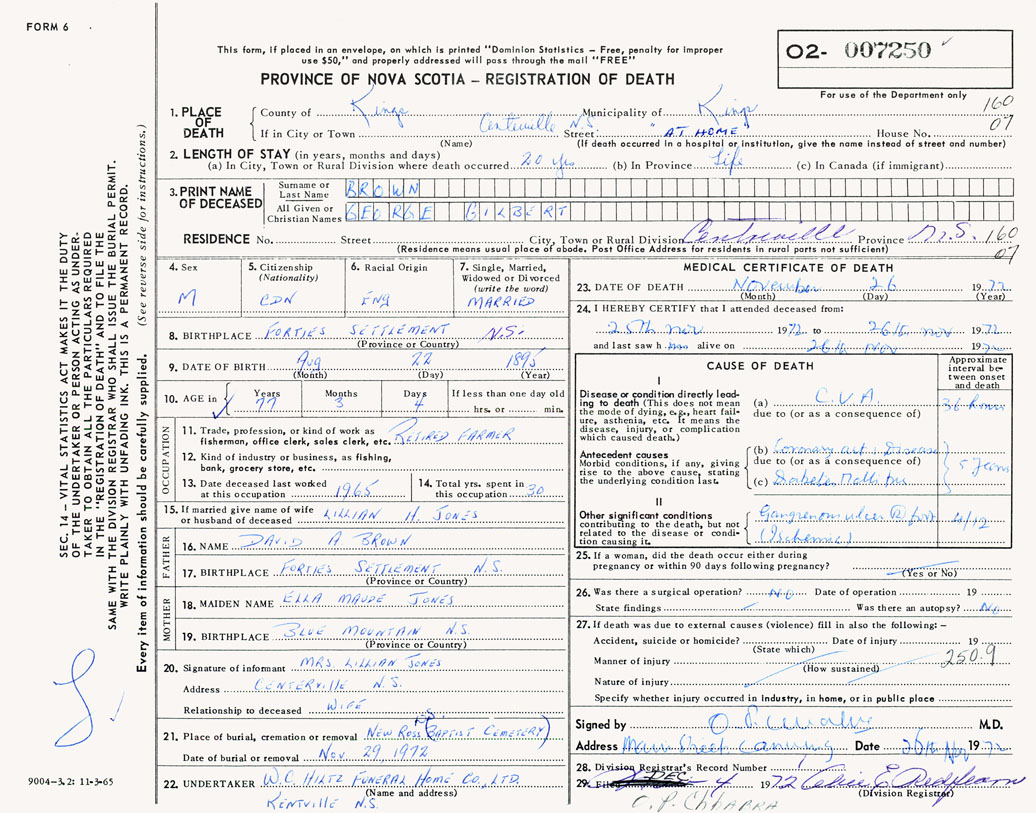 FORM 6
This form, if placed in an envelope, on which is printed "Dominion Statistics – Free, penalty for improper
use $50," and properly addressed will pass through the mail "FREE"
PROVINCE OF NOVA SCOTIA – REGISTRATION OF DEATH
O2- 007250
For use of the Department only
160
07
1. PLACE OF DEATH
County of Kings Municipality of Kings
If in City or Town Centreville N.S. Street "AT HOME" House No.
(Name) (If death occurred in a hospital or institution, give the name instead of street and number)
2. LENGTH OF STAY (in years, months and days)
(a) In City, Town or Rural Division where death occurred 20 yrs (b) In Province Life (c) In Canada (if immigrant)
3. PRINT NAME OF DECEASED
Surname or Last Name BROWN
All Given or Christian Names GEORGE GILBERT
RESIDENCE No. Street City, Town or Rural Division Centreville Province N.S. 160
(Residence means usual place of abode. Post Office Address for residents in rural parts not sufficient) 07
4. Sex
M
5. Citizenship
(Nationality)
CDN
6. Racial Origin
ENG
7. Single, Married,
Widowed or Divorced
(write the word)
MARRIED
8. BIRTHPLACE FORTIES SETTLEMENT N.S.
(Province or Country)
9. DATE OF BIRTH Aug 22 1895
(Month) (Day) (Year)
10. AGE in Years Months Days If less than one day old
77 3 4 hrs. or min.
OCCUPATION
11. Trade, profession, or kind of work as
fisherman, office clerk, sales clerk, etc. RETIRED FARMER
12. Kind of industry or business, as fishing,
bank, grocery store, etc.
13. Date deceased last worked
at this occupation 1965
14. Total yrs. spent in
this occupation 30
15. If married give name of wife
or husband of deceased LILLIAN H. JONES
FATHER
16. NAME DAVID A BROWN
17. BIRTHPLACE FORTIES SETTLEMENT N.S.
(Province or Country)
MOTHER
18. MAIDEN NAME ELLA MAUDE JONES
19. BIRTHPLACE BLUE MOUNTAIN N.S.
(Province or Country)
20. Signature of informant MRS. LILLIAN JONES
Address CENTERVILLE N.S.
Relationship to deceased WIFE
21. Place of burial, cremation or removal NEW ROSS N.S. (BAPTIST CEMETERY)
Date of burial or removal NOV. 29 1972
22. UNDERTAKER W.C. HILTZ FUNERAL HOME CO., LTD.
(Name and address)
KENTVILLE N.S.
MEDICAL CERTIFICATE OF DEATH
23. DATE OF DEATH November 26 1972
(Month) (Day) (Year)
24. I HEREBY CERTIFY that I attended deceased from:
25th Nov 1972 to 26th Nov 1972
and last saw h im alive on 26th Nov 1972
CAUSE OF DEATH
Approximate
interval be-
tween onset
and death
I
Disease or condition directly lead-
ing to death (This does not mean
the mode of dying, e.g., heart fail-
ure, asthenia, etc. It means the
disease, injury, or complication
which caused death.)
(a) C.V.A. 36 hours
due to (or as a consequence of)
Antecedent causes
Morbid conditions, if any, giving
rise to the above cause, stating
the underlying condition last.
(b) Coronary art. Disease
due to (or as a consequence of)
(c) Diabetes Mellitus
5 years
II
Other significant conditions
contributing to the death, but not
related to the disease or condi-
tion causing it.
Gangrenous ulcer (R) foot 4/12
(Ischemic)
25. If a woman, did the death occur either during
pregnancy or within 90 days following pregnancy?
(Yes or No)
26. Was there a surgical operation? No Date of operation 19
State findings Was there an autopsy? No
27. If death was due to external causes (violence) fill in also the following: –
Accident, suicide or homicide? Date of injury 19
(State which)
250.9
Manner of injury
(How sustained)
Nature of injury
Specify whether injury occurred in industry, in home, or in public place
Signed by M.D.
Address Main Street Canning Date 26th Nov 1972
28. Division Registrar's Record Number
29. Filed DEC 4 1972
(Division Registrar)
C.P. CHHABRA
SEC. 14 – VITAL STATISTICS ACT MAKES IT THE DUTY
OF THE UNDERTAKER OR PERSON ACTING AS UNDER-
TAKER TO OBTAIN ALL THE PARTICULARS REQUIRED
IN THE "REGISTRATION OF DEATH" AND TO FILE THE
SAME WITH THE DIVISION REGISTRAR WHO SHALL ISSUE THE BURIAL PERMIT.
WRITE PLAINLY WITH UNFADING INK. THIS IS A PERMANENT RECORD.
Every item of information should be carefully supplied. (See reverse side for instructions.)
9004-3.2: 11-3-65